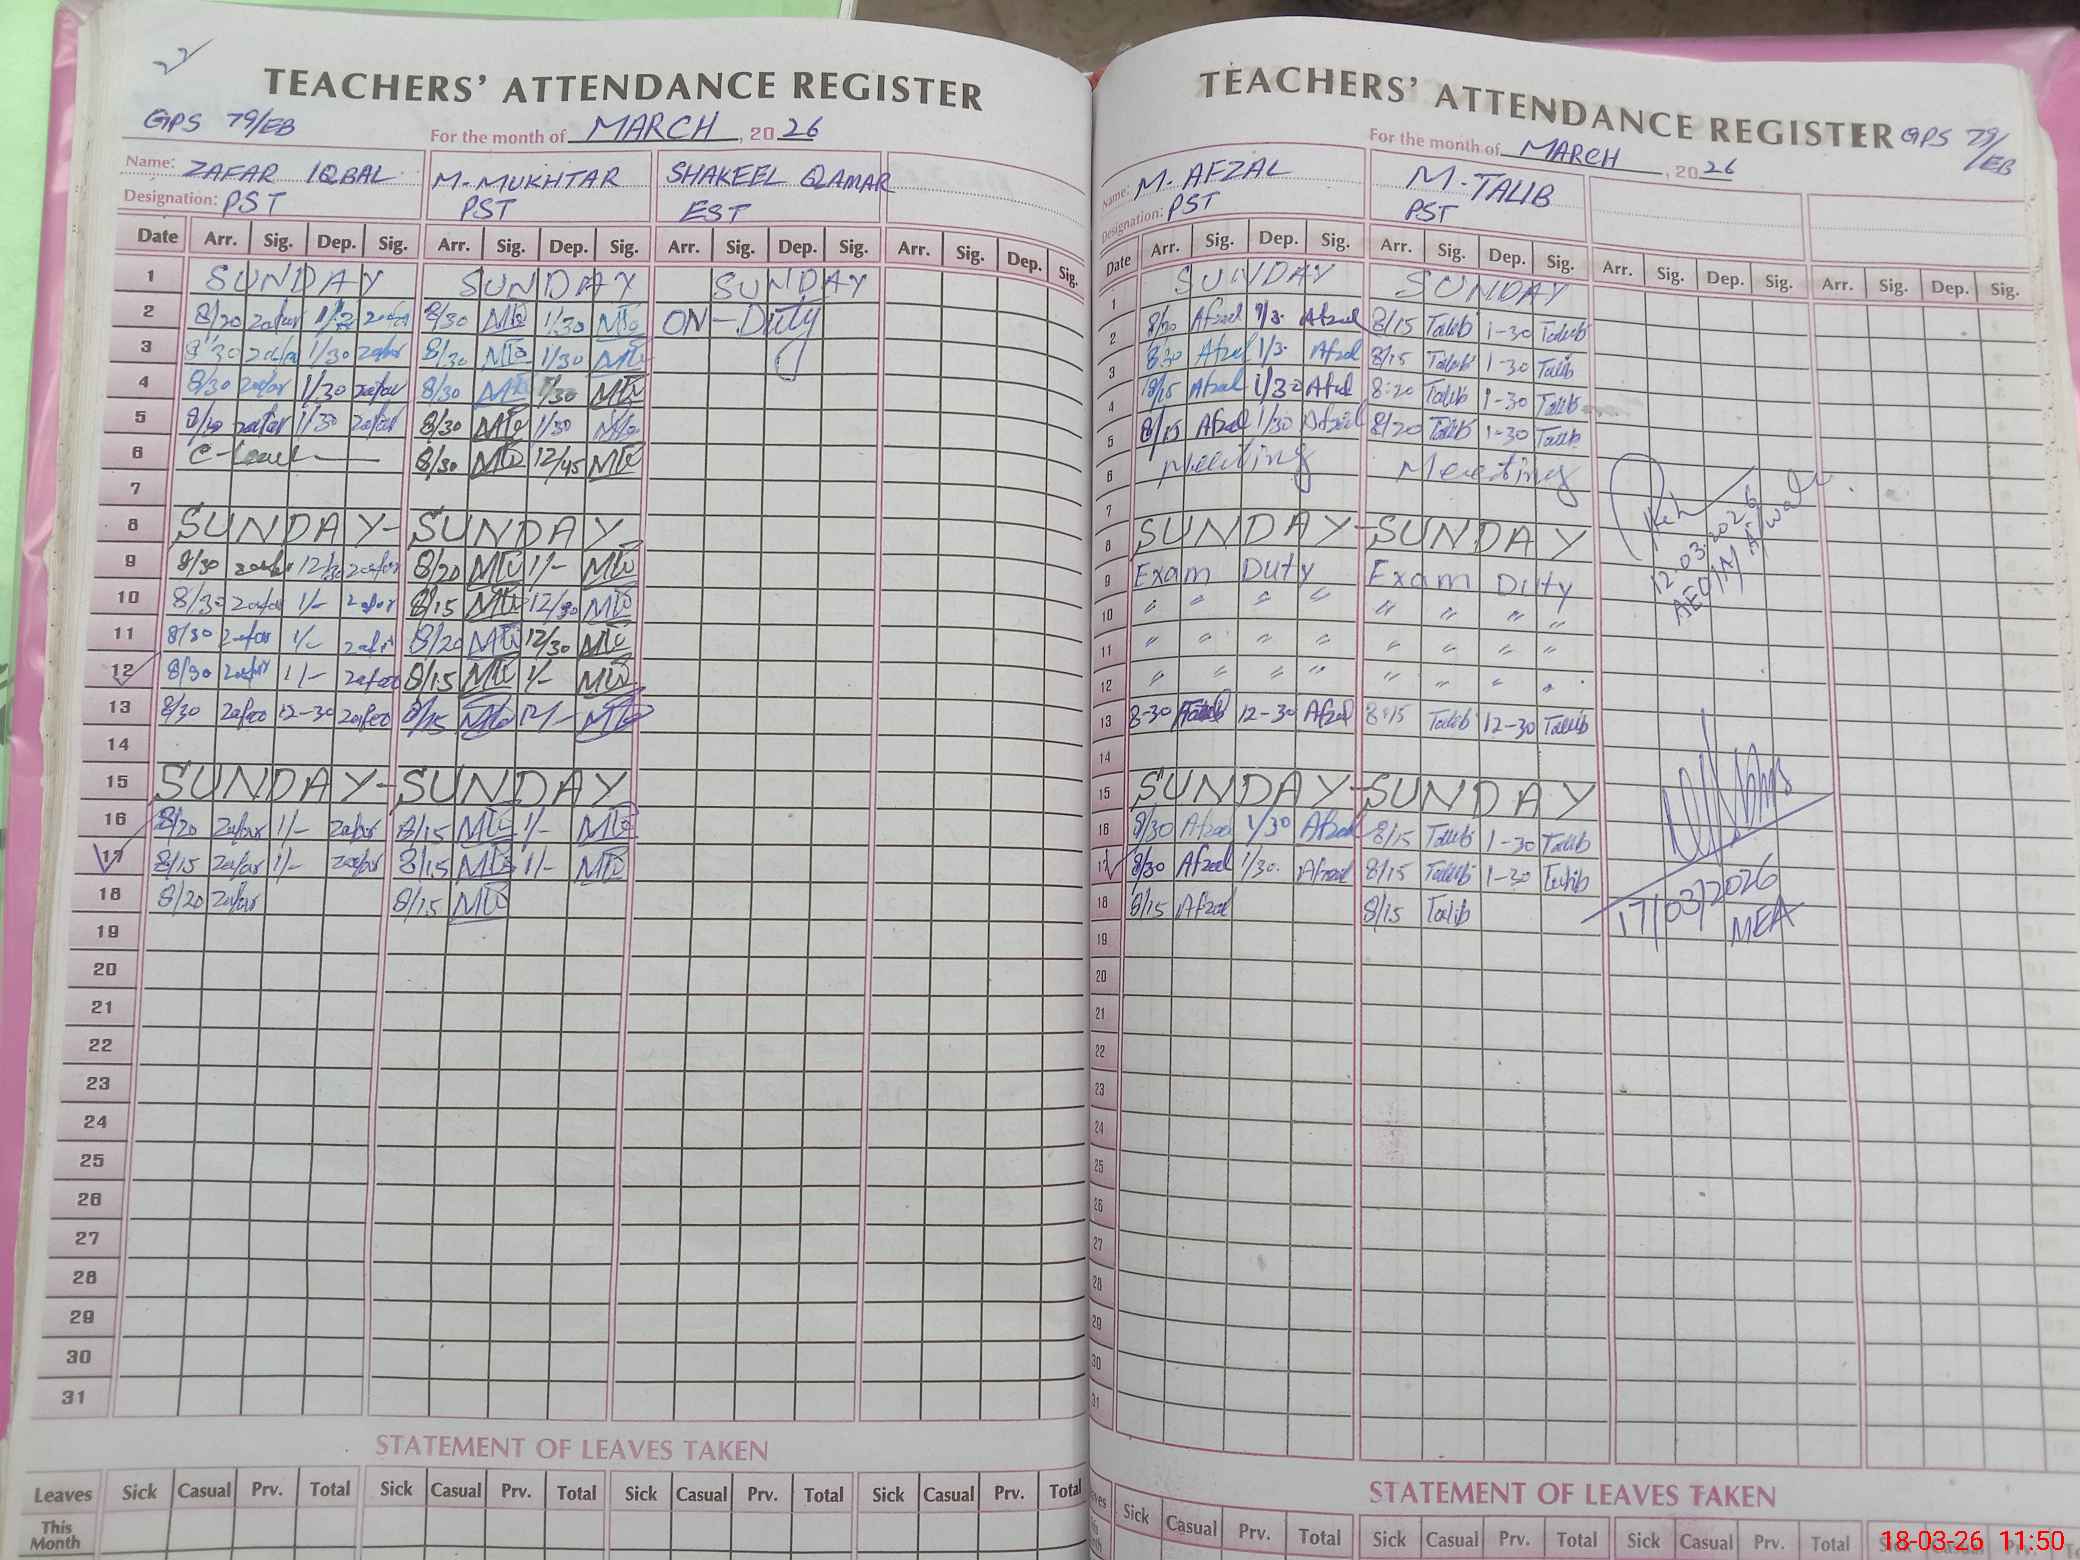 TEACHERS' ATTENDANCE REGISTER
GPS 79/EB
For the month of MARCH, 2026
Name: ZAFAR IQBAL M-MUKHTAR SHAKEEL QAMAR
Designation: PST PST EST
Date Arr. Sig. Dep. Sig. Arr. Sig. Dep. Sig. Arr. Sig. Dep. Sig. Arr. Sig. Dep. Sig.
1 SUNDAY SUNDAY SUNDAY
2 8/20 zafar zafar 8/30 1/30 ON-Duty
3 8/30 zafar 1/30 zafar 8/30 1/30
4 8/30 zafar 1/30 zafar 8/30 1/30
5 zafar 1/30 zafar 8/30 1/30
6 C-leave 8/30 12/45
7
8 SUNDAY-SUNDAY
9 8/30 zafar 12/30 zafar 8/20 1/-
10 8/30 zafar 1/- zafar 8/15 12/30
11 8/30 zafar 1/- zafar 8/20 12/30
12 8/30 zafar 1/- zafar 8/15 1/-
13 8/30 zafar 12-30 zafar 8/15
14
15 SUNDAY-SUNDAY
16 8/20 zafar 1/- zafar 8/15 1/-
17 8/15 zafar 1/- zafar 8/15 1/-
18 8/20 zafar 8/15
19
20
21
22
23
24
25
26
27
28
29
30
31
STATEMENT OF LEAVES TAKEN
Leaves Sick Casual Prv. Total Sick Casual Prv. Total Sick Casual Prv. Total Sick Casual Prv. Total
This Month
TEACHERS' ATTENDANCE REGISTER GPS 79/EB
For the month of MARCH, 2026
Name: M. AFZAL M. TALIB
Designation: PST PST
Date Arr. Sig. Dep. Sig. Arr. Sig. Dep. Sig. Arr. Sig. Dep. Sig. Arr. Sig. Dep. Sig.
1 SUNDAY SUNDAY
2 Afzal Afzal 8/15 Talib 1-30 Talib
3 8:30 Afzal Afzal 8/15 Talib 1-30 Talib
4 8/15 Afzal 1/30 Afzal 8:20 Talib 1-30 Talib
5 8/15 Afzal 1/30 Afzal 8/20 Talib 1-30 Talib
6 Meeting Meeting
7
8 SUNDAY-SUNDAY
9 Exam Duty Exam Duty
10 " " " " " " " "
11 " " " " " " " "
12 " " " " " " " "
13 8-30 12-30 Afzal 8:15 Talib 12-30 Talib
14
15 SUNDAY-SUNDAY
16 8/30 Afzal 1/30 Afzal 8/15 Talib 1-30 Talib
17 8/30 Afzal 1/30. Afzal 8/15 Talib 1-30 Talib
18 8/15 Afzal 8/15 Talib
19
20
21
22
23
24
25
26
27
28
29
30
31
12.03.2026
17/03/2026
MEA
STATEMENT OF LEAVES TAKEN
Sick Casual Prv. Total Sick Casual Prv. Total Sick Casual Prv. Total
18-03-26 11:50